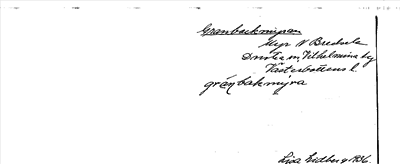 Granbackmyran
Myr N Bredsele
Dorotea sn, Vilhelmina tg
Västerbottens l.
gránbakmýra
Lisa Lidberg 1936.